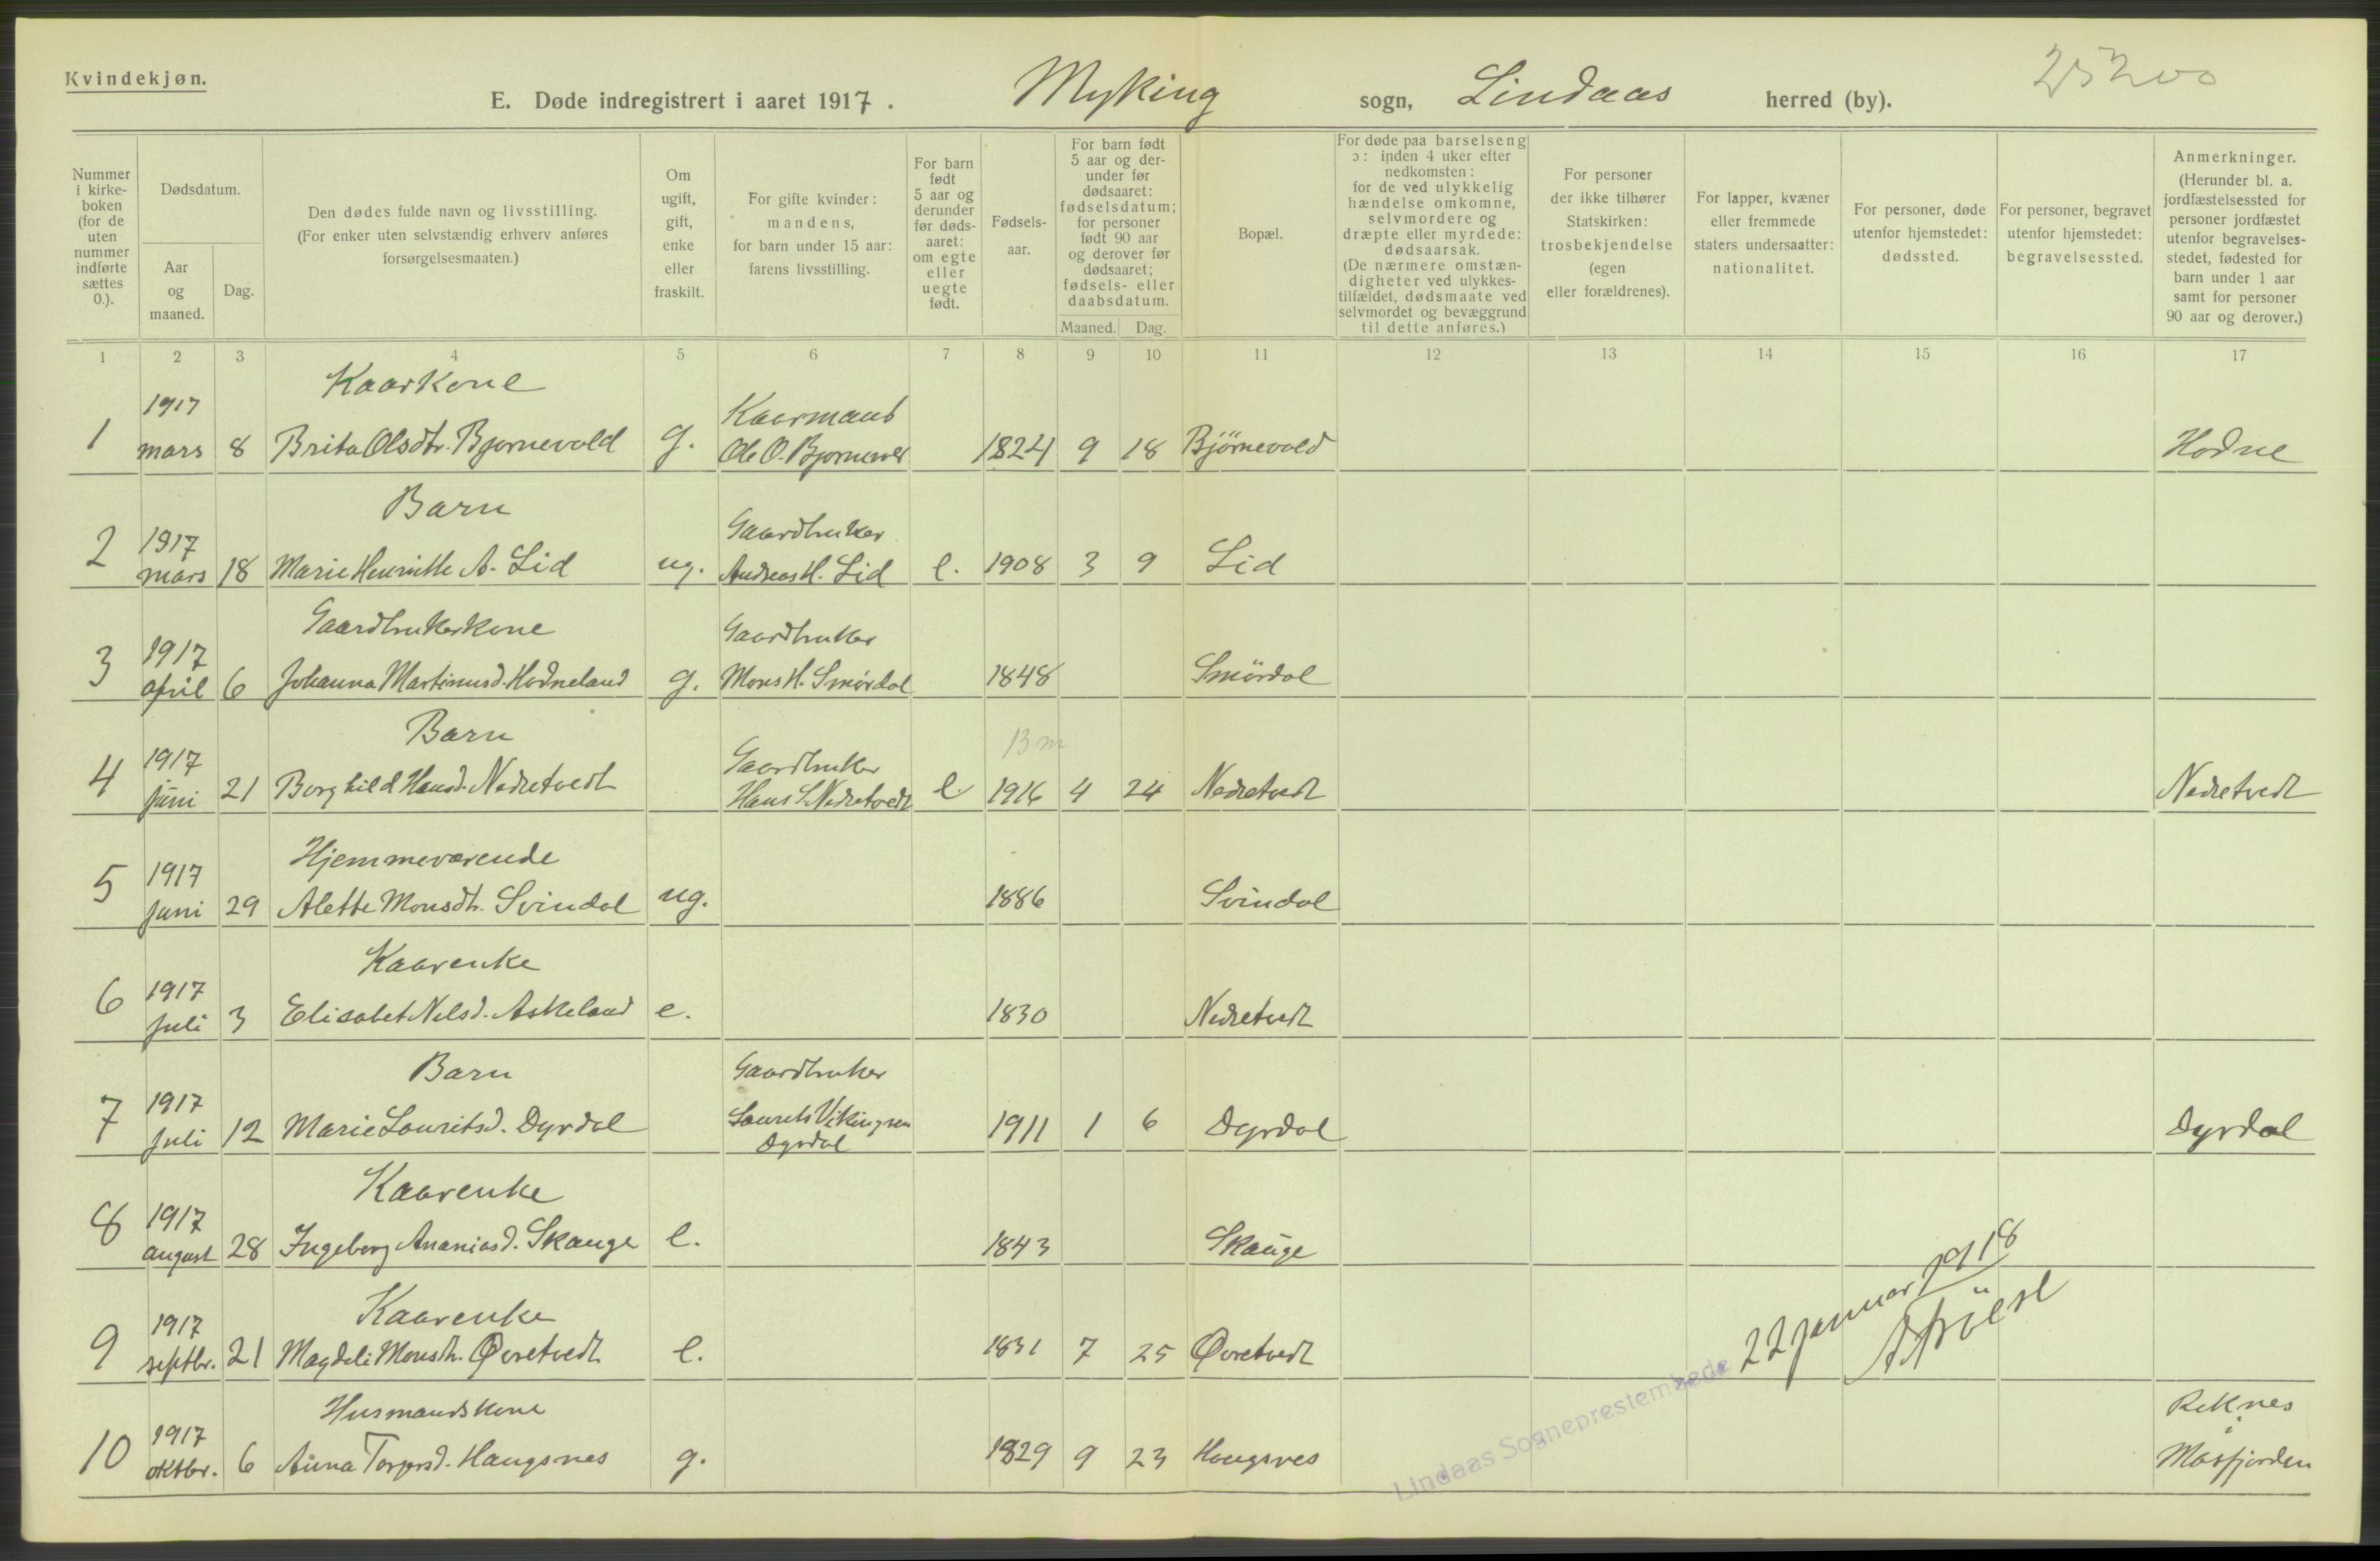 Kvindekjøn.
E. Døde indregistrert i aaret 1917. Myking sogn, Lindaas herred (by).
Nummer i kirkeboken (for de uten nummer indførte sættes 0.).
Dødsdatum.
Aar og maaned.
Dag.
Den dødes fulde navn og livsstilling.
(For enker uten selvstændig erhverv anføres forsørgelsesmaaten.)
Om ugift, gift, enke eller fraskilt.
For gifte kvinder: mandens, for barn under 15 aar: farens livsstilling.
For barn født 5 aar og derunder før dødsaaret: om egte eller uegte født.
Fødselsaar.
For barn født 5 aar og derunder før dødsaaret: fødselsdatum; for personer født 90 aar og derover før dødsaaret; fødsels- eller daabsdatum.
Maaned.
Dag.
Bopæl.
For døde paa barselseng ɔ: inden 4 uker efter nedkomsten: for de ved ulykkelig hændelse omkomne, selvmordere og dræpte eller myrdede: dødsaarsak.
(De nærmere omstændigheter ved ulykkestilfældet, dødsmaate ved selvmordet og bevæggrund til dette anføres.)
For personer der ikke tilhører Statskirken: trosbekjendelse (egen eller forældrenes).
For lapper, kvæner eller fremmede staters undersaatter: nationalitet.
For personer, døde utenfor hjemstedet: dødssted.
For personer, begravet utenfor hjemstedet: begravelsessted.
Anmerkninger.
(Herunder bl. a. jordfæstelsessted for personer jordfæstet utenfor begravelsesstedet, fødested for barn under 1 aar samt for personer 90 aar og derover.)
1 2 3 4 5 6 7 8 9 10 11 12 13 14 15 16 17
Kaarkone
1917 Kaarmand
1 mars 8 Brita Olsdtr. Bjørnevold g. Ole O. 1824 9 18 Bjørnevold Hodne
Barn
1917 Gaardbruker
2 mars 18 Marie Henrikke A. Lid ug. Andreas H. Lid e. 1908 3 9 Lid
Gaardbrukerkone
1917 Gaardbruker
3 april 6 Johanna Martinusd. Hodneland g. Mons H. Smördal 1848 Smördal
Barn
1917 Gaardbruker 13 m
4 juni 21 Borghild Hansd. Nedretvedt Hans S. Nedretvedt e. 1916 4 24 Nedretvedt Nedretvedt
Hjemmeværende
1917
5 juni 29 Alette Monsdtr. Svindal ug. 1886 Svindal
Kaarenke
1917
6 juli 3 Elisabet Nelsd. Askeland e. 1830 Nedretvedt
Barn
1917 Gaardbruker
7 juli 12 Marie Lauritsd. Dyrdal Laurits Vikingsen Dyrdal 1911 1 6 Dyrdal Dyrdal
Kaarenke
1917
8 august 28 Ingeborg Ananiasd. Skauge e. 1843 Skauge
Kaarenke
1917
9 septbr. 21 Magdeli Monsdtr. Øvretvedt e. 1831 7 25 Øvretvedt
Husmandskone
1917 Reknes i
10 oktbr. 6 Anna Torgersd. Haugsnes g. 1829 9 23 Haugsnes Masfjorden
Lindaas Sogneprestembede 22 januar 1918